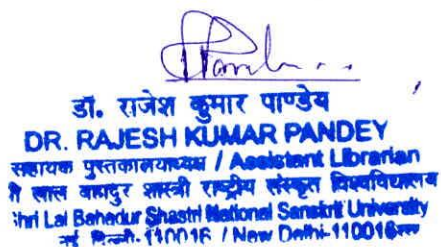 डॉ. राजेश कुमार पाण्डेय
DR. RAJESH KUMAR PANDEY
सहायक पुस्तकालयाध्यक्ष / Assistant Librarian
लाल बहादुर शास्त्री राष्ट्रीय संस्कृत विश्वविद्यालय
Shri Lal Bahadur Shastri National Sanskrit University
नई दिल्ली-110016 / New Delhi-110016